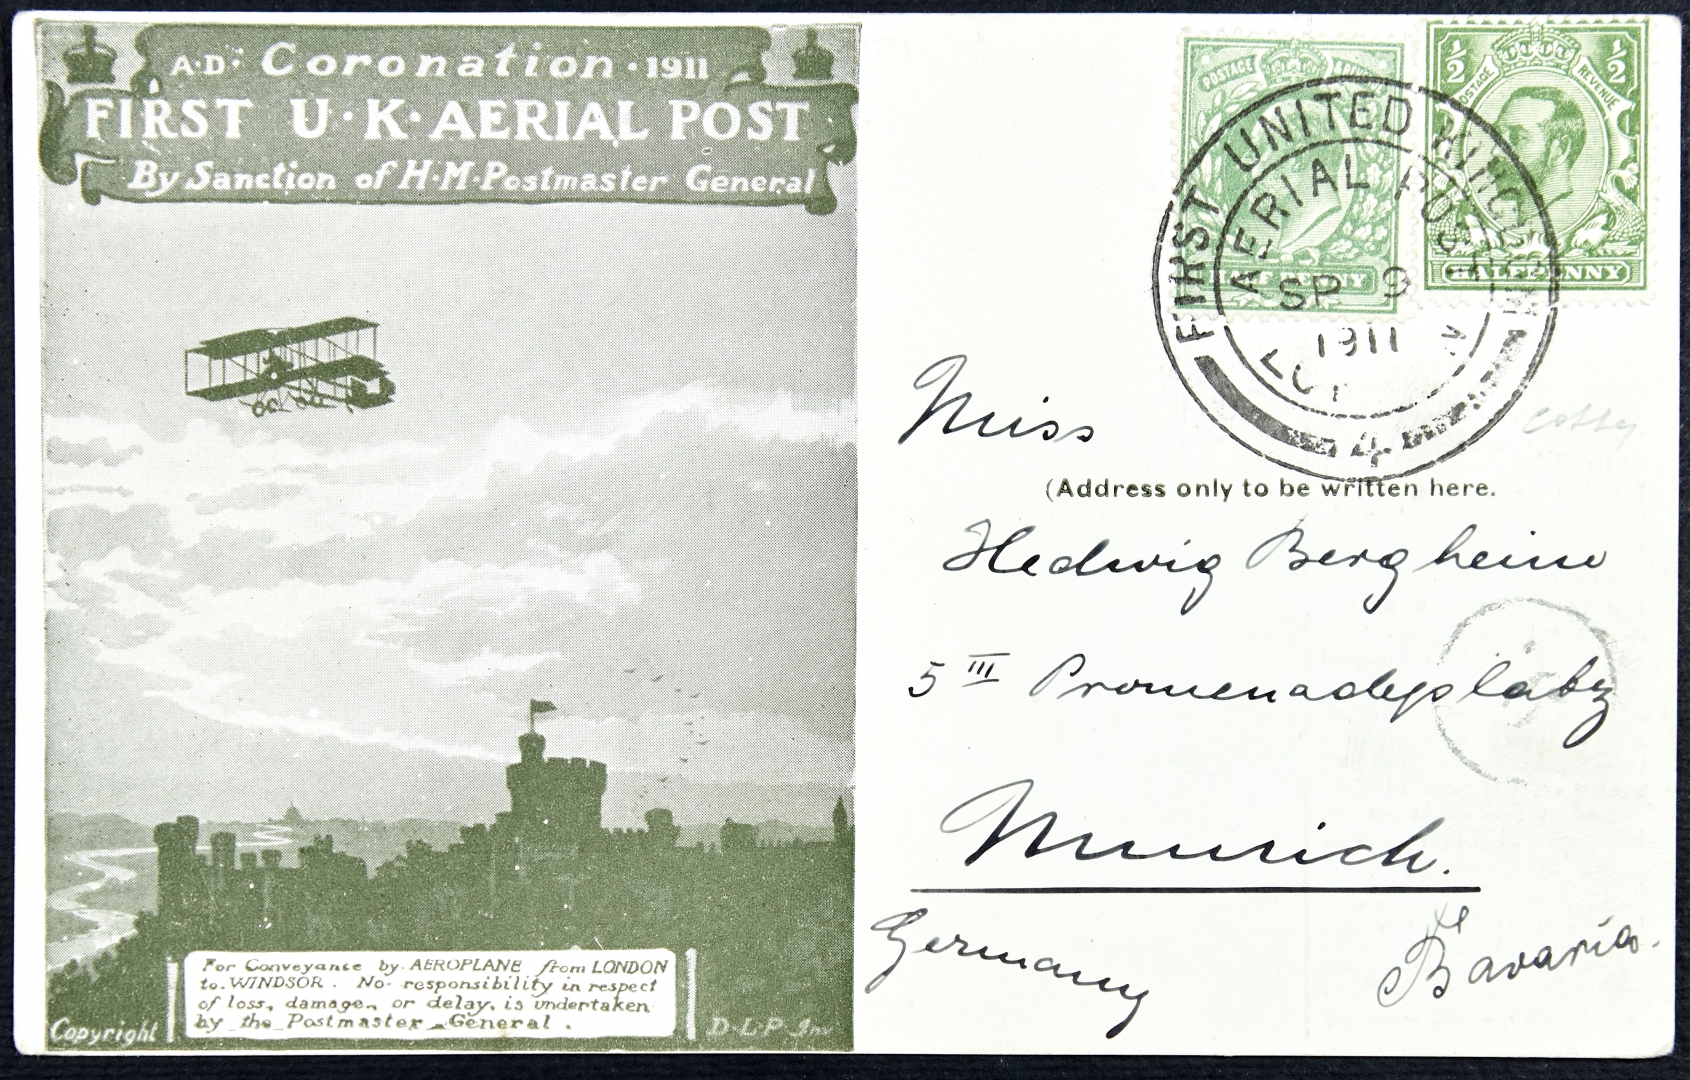 A·D· Coronation · 1911
FIRST U·K·AERIAL POST
By Sanction of H·M·Postmaster General
For Conveyance by AEROPLANE from LONDON
to WINDSOR. No responsibility in respect
of loss, damage, or delay, is undertaken
by the Postmaster General.
Copyright
D·L·P·Inv
POSTAGE
HALFPENNY
½ ½
POSTAGE REVENUE
HALFPENNY
FIRST UNITED KINGDOM
AERIAL POST
SP 9
1911
LONDON
4
Miss
(Address only to be written here.
Hedwig Bergheim
5 III Promenadeplatz
Munich.
Germany Bavaria.